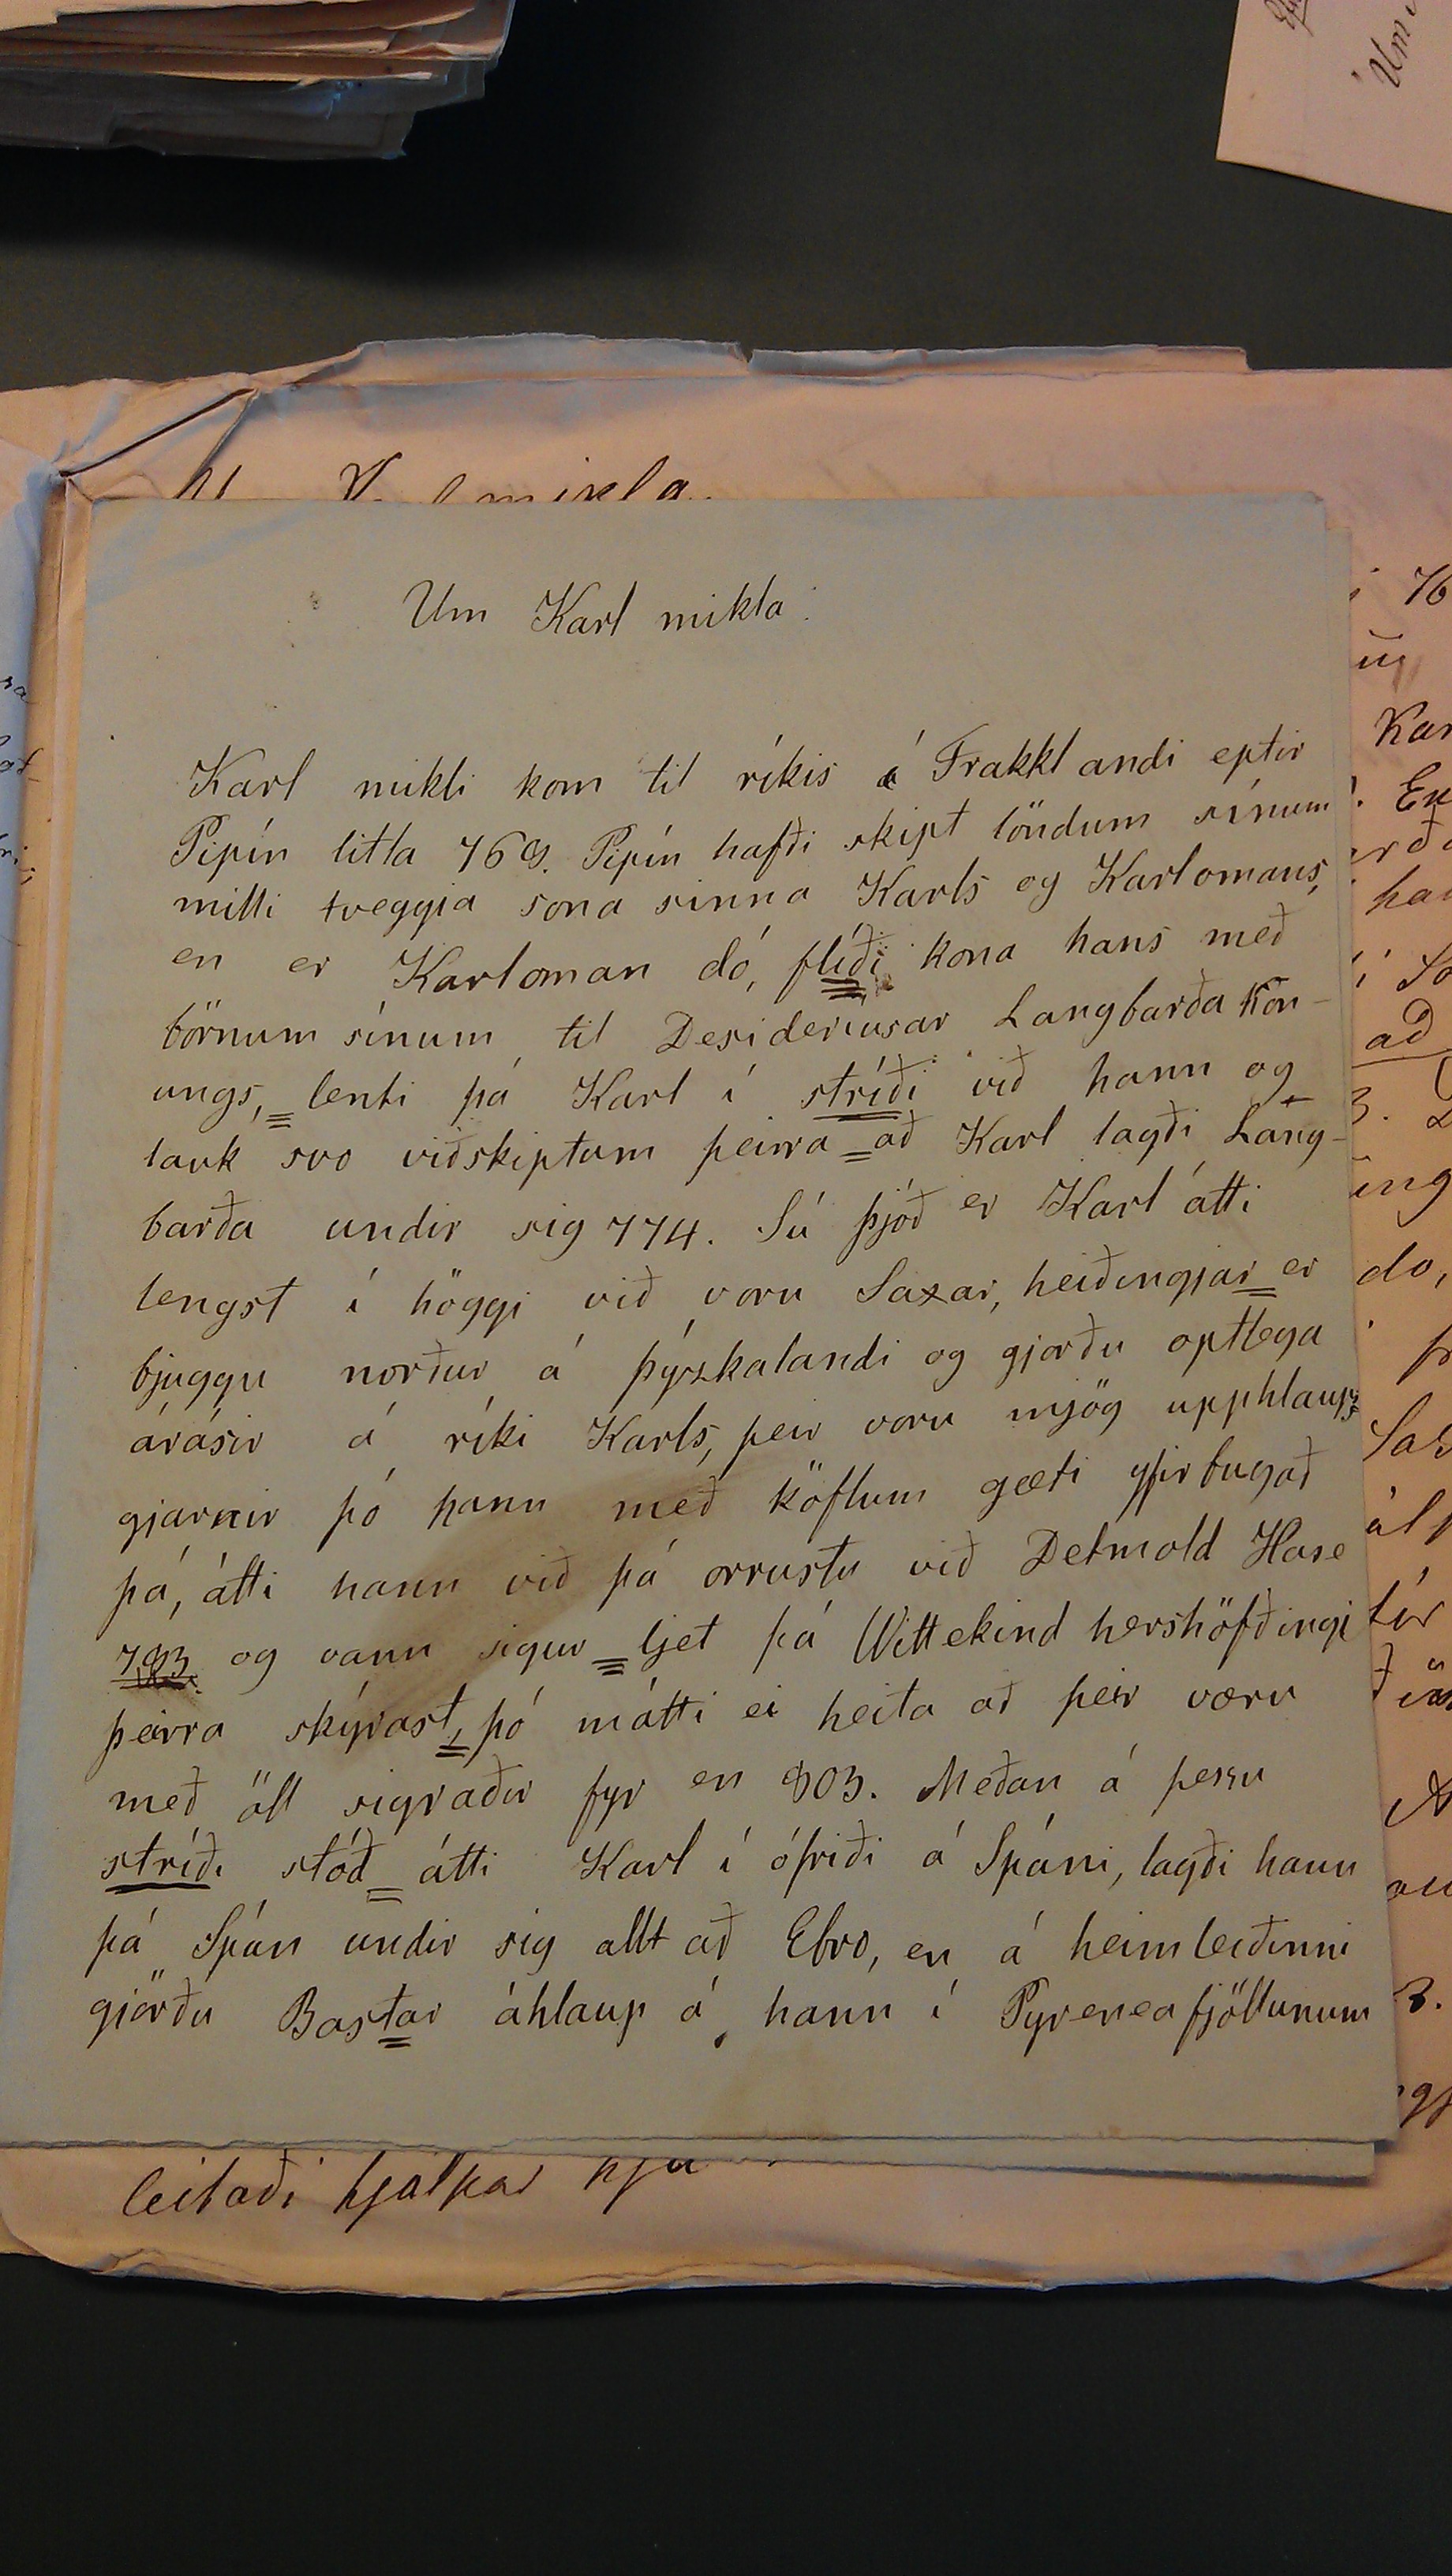 Um Karl mikla.
Karl mikli kom til ríkis á Frakklandi eptir
Pipín litla 768. Pipín hafði skipt löndum sínum
milli tveggja sona sinna Karls og Karlomans,
en er Karloman dó, flíði kona hans með
börnum sínum til Desideríusar Langbarða kon-
ungs, lenti þá Karl í stríði við hann og
lauk svo viðskiptum þeirra að Karl lagði Lang-
barða undir sig 774. Sú þjóð er Karl átti
lengst í höggi við voru Saxar, heiðingjar er
bjuggu norður á þýzkalandi og gjorðu optlega
árásir á ríki Karls, þeir voru mjög upphlaups
gjarnir þó hann með köflum gæti yfirbugað
þá, átti hann við þá orrustu við Detmold Hase
783 og vann sigur ljet þá Wittekind hershöfðingi
þeirra skýrast, þó mátti ei heita að þeir væru
með öll sigraðir fyr en 803. Meðan á þessu
stríði stóð átti Karl í ófriði á Spáni, lagði hann
þá Spán undir sig allt að Ebro, en á heimleiðinni
gjörðu Bastar áhlaup á hann í Pyreneafjöllunum
leitaði hjálpar hjá